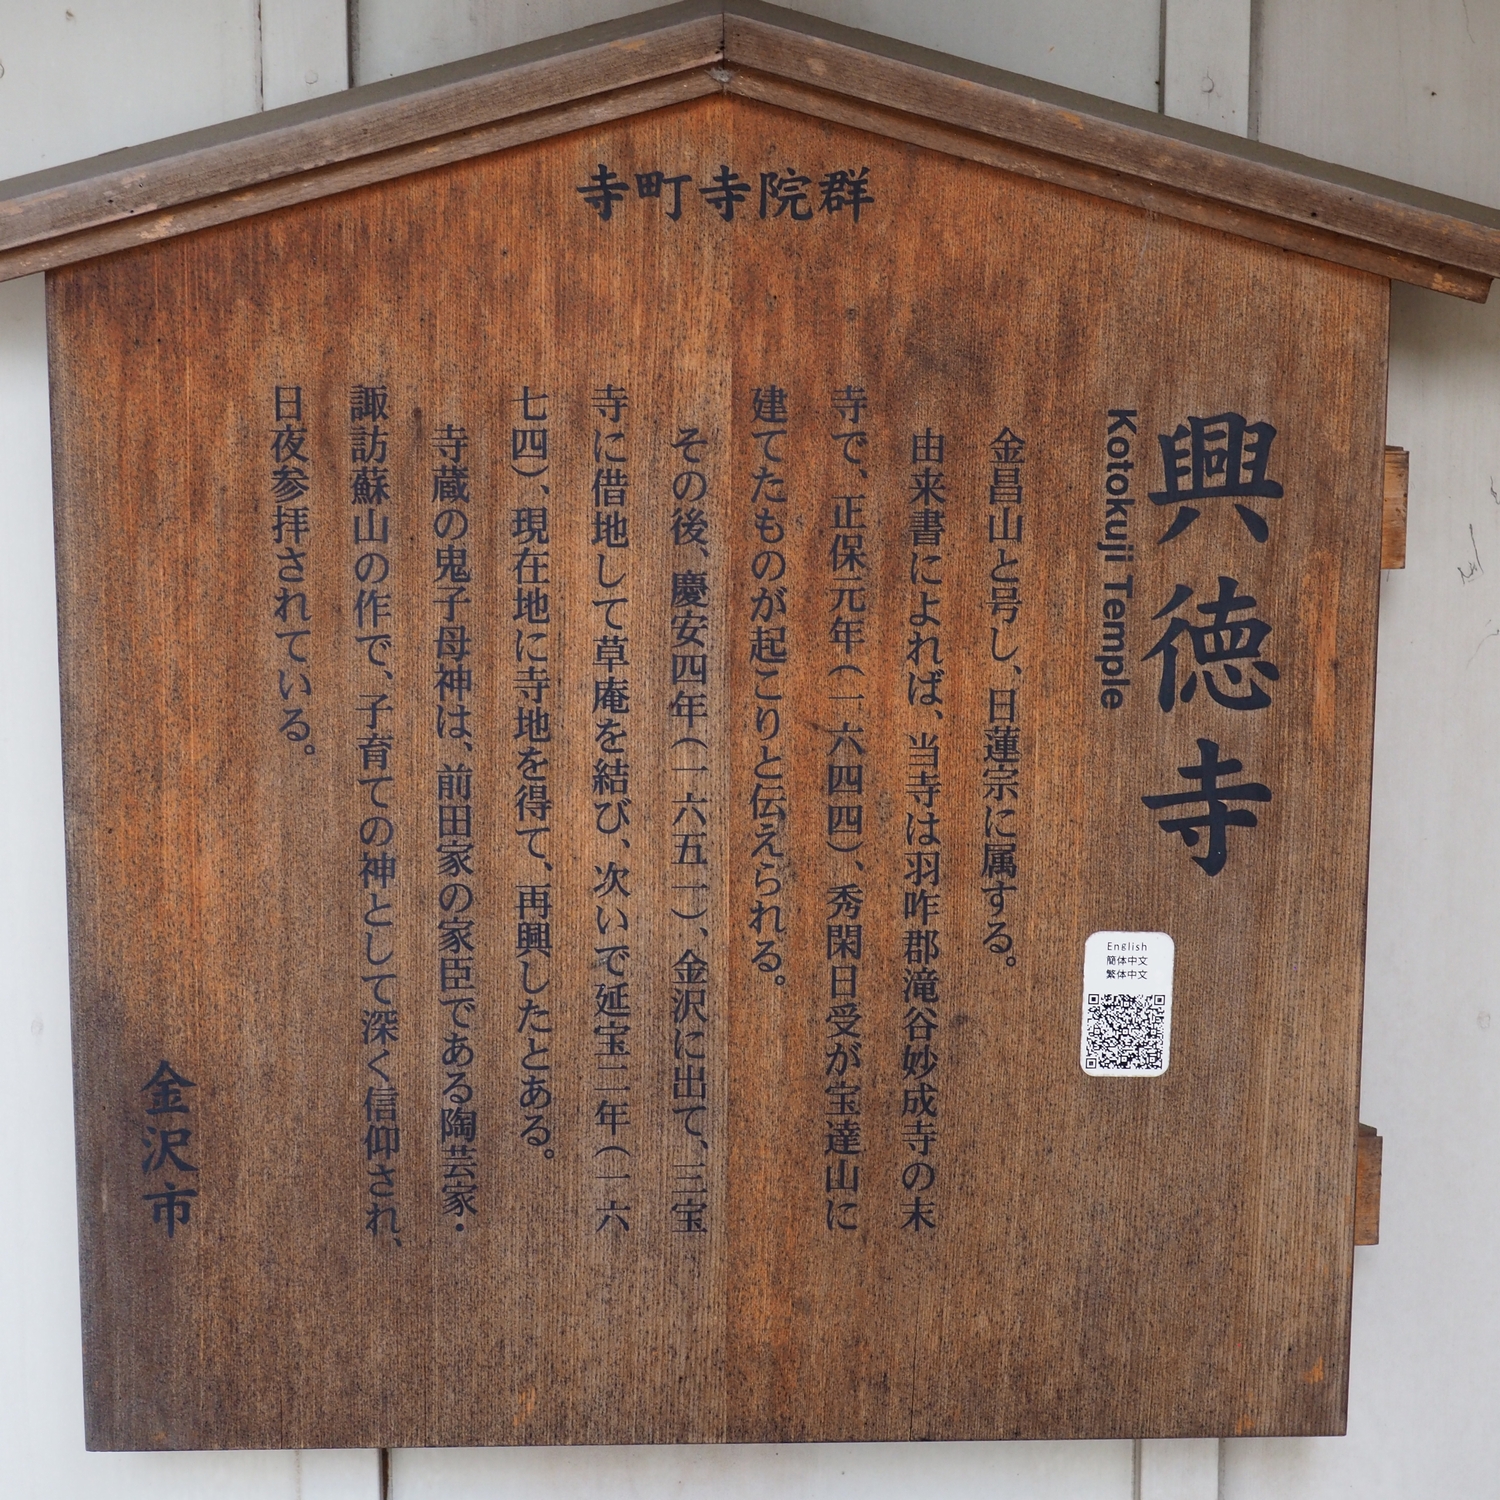 寺町寺院群
興徳寺
Kotokuji Temple
English
簡体中文
繁体中文
金昌山と号し、日蓮宗に属する。
由来書によれば、当寺は羽咋郡滝谷妙成寺の末
寺で、正保元年（一六四四）、秀閑日受が宝達山に
建てたものが起こりと伝えられる。
その後、慶安四年（一六五一）、金沢に出て、三宝
寺に借地して草庵を結び、次いで延宝二年（一六
七四）、現在地に寺地を得て、再興したとある。
寺蔵の鬼子母神は、前田家の家臣である陶芸家・
諏訪蘇山の作で、子育ての神として深く信仰され、
日夜参拝されている。
金沢市